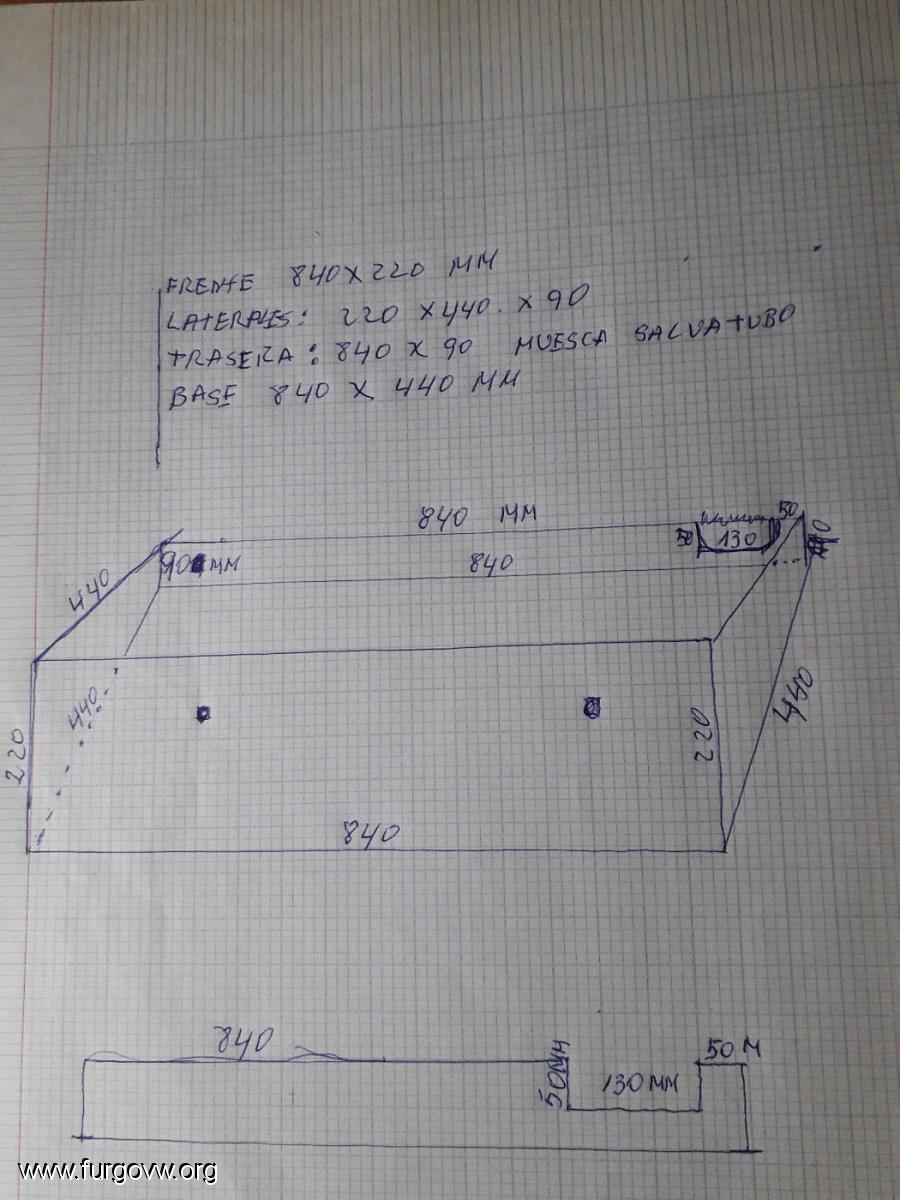 FRENTE 840 X 220 MM
LATERALES: 220 X 440. X 90
TRASERA: 840 X 90 MUESCA SALVATUBO
BASE 840 X 440 MM
840 MM
50
50
130
90 MM
840
440
440
220
220
440
840
840
50MM
130 MM
50 M
www.furgovw.org